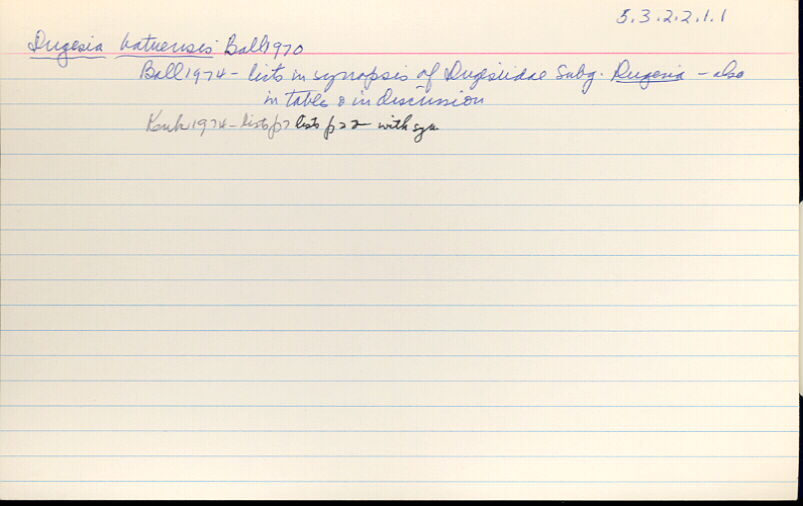 5.3.2.2.1.1
Dugesia batuensis Ball 1970
Ball 1974 - lists in synopsis of Dugesiidae Subg. Dugesia - also
in table & in discussion
Kenk 1974 - lists p7 lists p22 - with syn